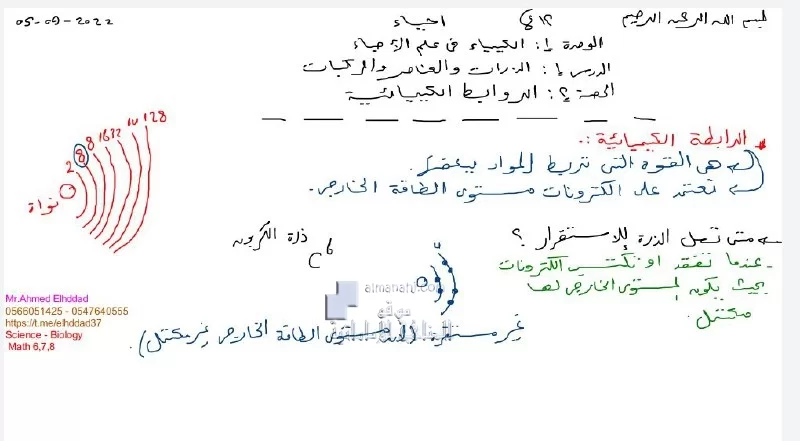 05-09-2022
بسم الله الرحمن الرحيم
١٢ع
احياء
الوحدة ١: الكيمياء في علم الأحياء
الدرس ١: الذرات والعناصر والمركبات
الحصة ٢: الروابط الكيميائية
الرابطة الكيميائية:.
هي القوة التي تربط المواد ببعض.
تعتمد على الكترونات مستوى الطاقة الخارجي.
2 8 8 16 32 128
نواة
متى تصل الذرة للاستقرار ؟
- عندما تفقد او تكتسب الكترونات
بحيث يكون المستوى الخارجي لها
مكتمل.
ذرة الكربون
C 6
غير مستقرة (لأن مستوى الطاقة الخارجي غير مكتمل).
almanahj.com
موقع
المناهج الإماراتية
Mr.Ahmed Elhddad
0566051425 - 0547640555
https://t.me/elhddad37
Science - Biology
Math 6,7,8